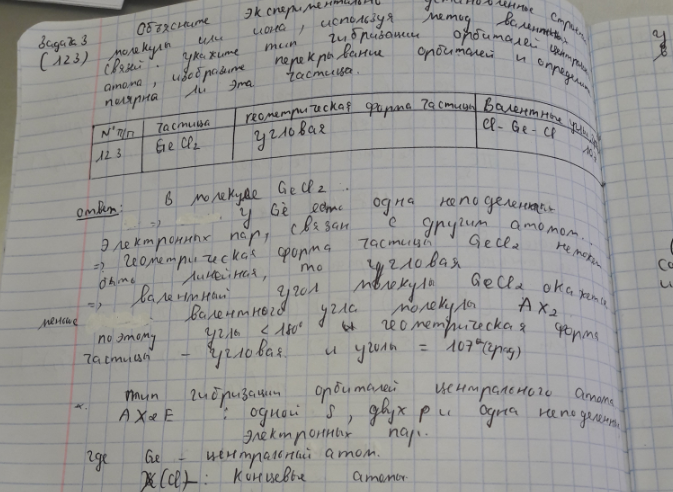 Задача 3
(123)
Объясните экспериментально установленные
молекулы или иона, используя метод валентных
связей. укажите тип гибризации орбиталей
атома, изобразите перекрывание орбиталей и определит
полярна ли эта частица.
N°п/п частица геометрическая форма частицы Валентные
123 GeCl₂ угловая Cl - Ge - Cl
ответ: в молекуле GeCl₂.
=> у Ge есть одна неподеленная
электронных пар, связан с другим атомом..
=> геометрическая форма частицы GeCl₂ не может
быть линейная, то угловая
=> валентный угол молекулы GeCl₂ окажется
меньше валентного угла молекулы AX₂
поэтому углы < 180° геометрическая форма
частицы - угловая. и уголь = 107°(град)
тип гибризации орбиталей центрального атома
AX₂E : одной s, двух p и одна неподеленн
электронных пар.
где Ge - центральный атом.
X(Cl) : концевые атомы